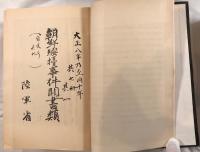 大正八年乃至同十年
共七冊
其一
朝鮮騒擾事件関係書類
陸軍省